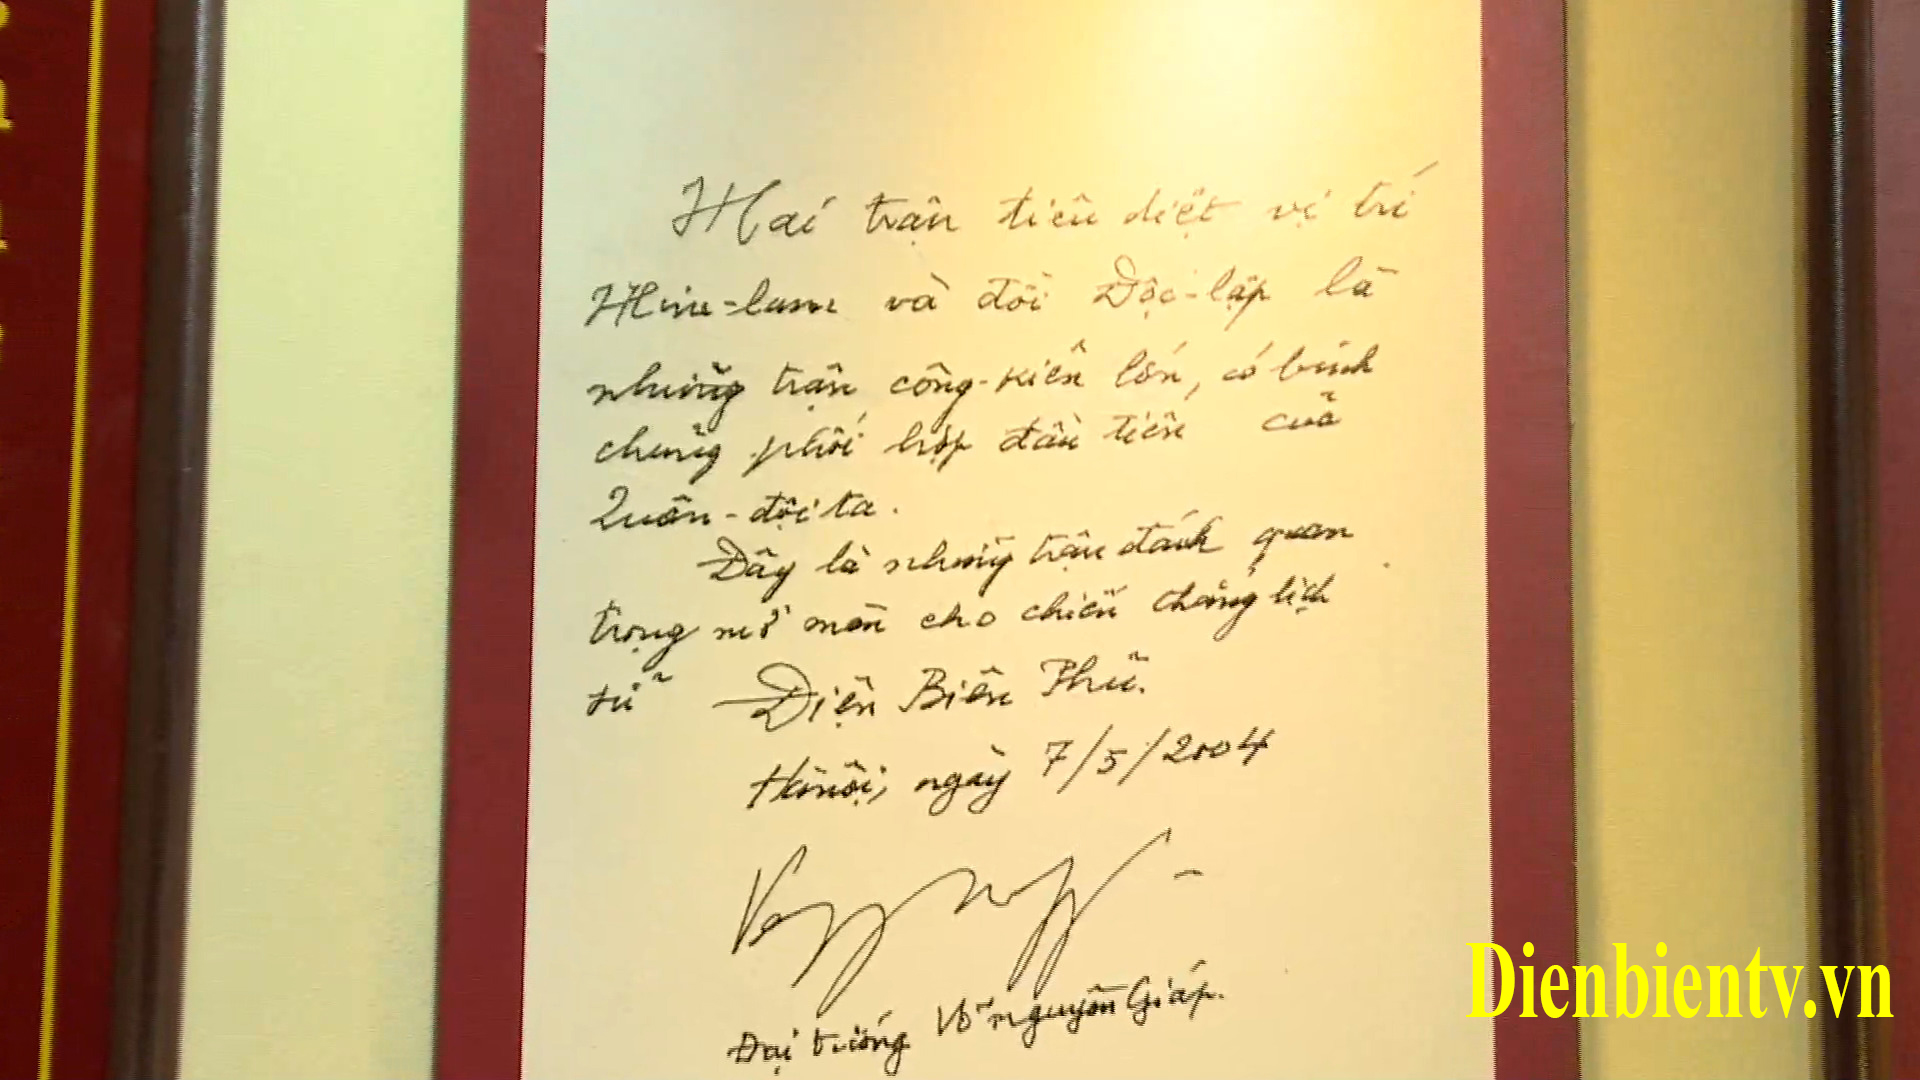 Hai trận tiêu diệt vị trí
Him-lam và đồi Độc-lập là
những trận công-kiên lớn, có binh
chủng phối hợp đầu tiên của
Quân-đội ta.
Đây là những trận đánh quan
trọng mở màn cho chiến thắng lịch
sử Điện Biên Phủ.
Hà nội, ngày 7/5/2004
Đại tướng Võ nguyên Giáp.
Dienbientv.vn